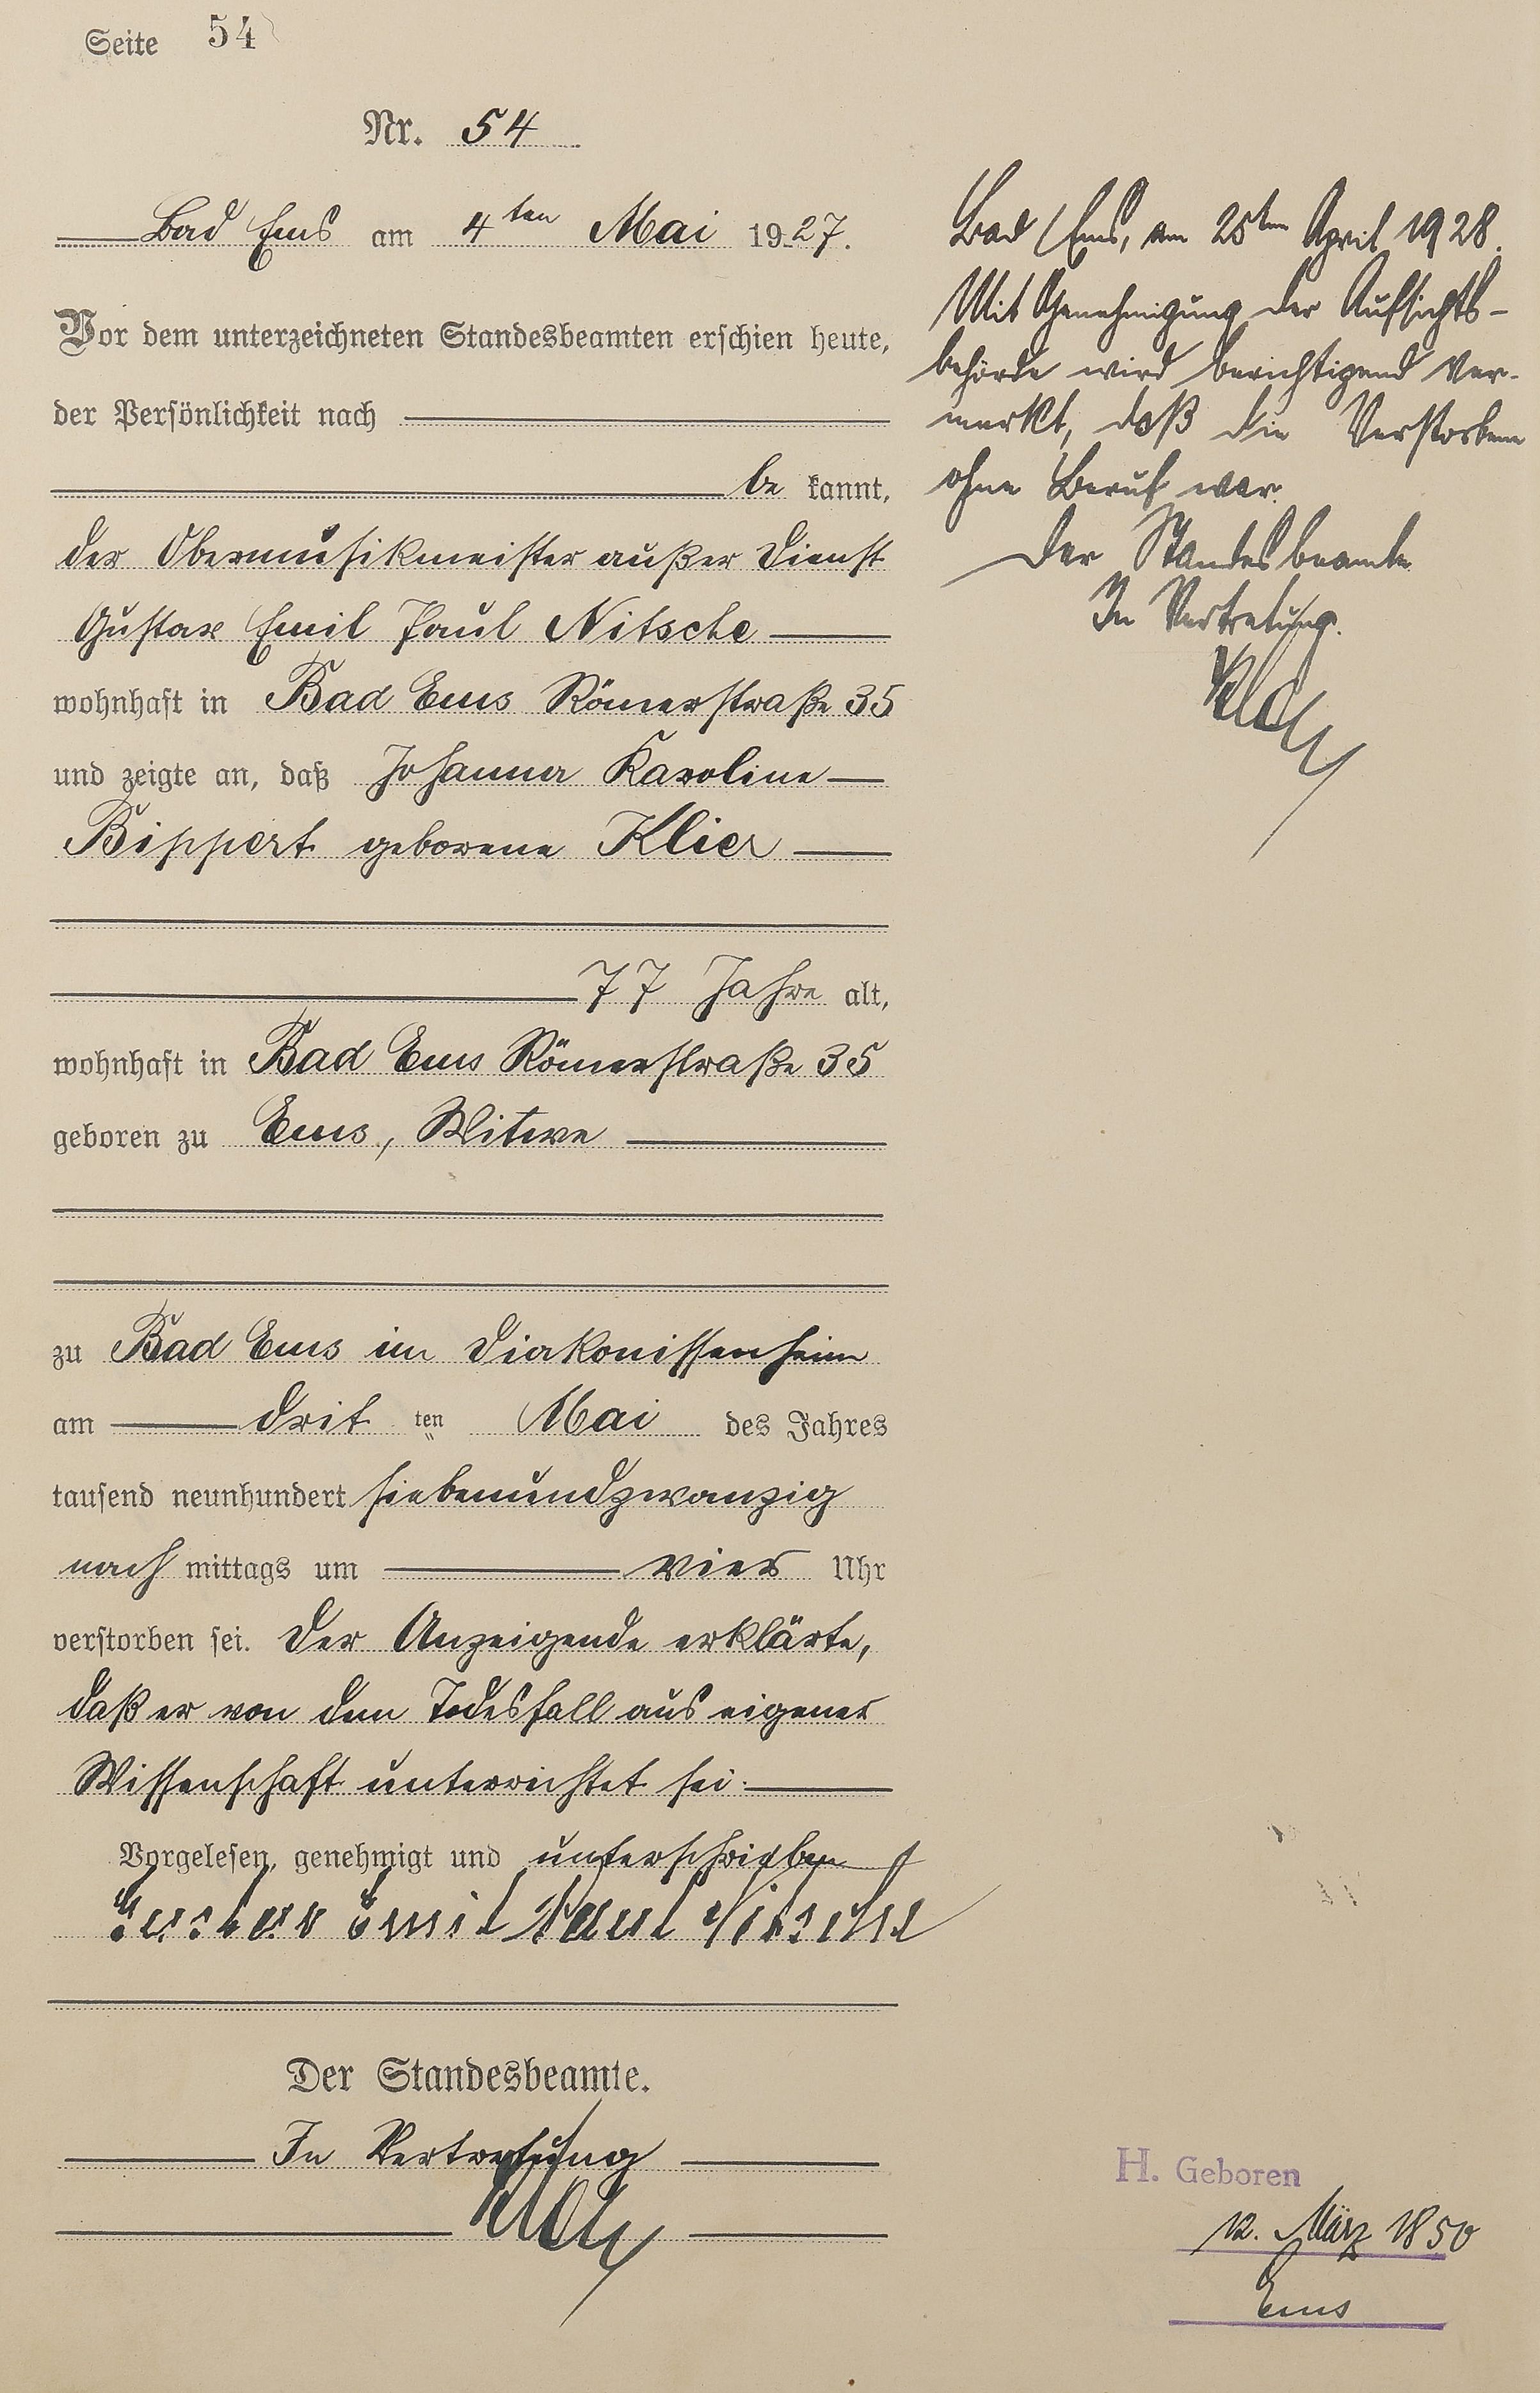 Seite 54
Nr. 54
Bad Ems am 4ten Mai 1927.
Vor dem unterzeichneten Standesbeamten erschien heute,
der Persönlichkeit nach
be kannt,
der Obermusikmeister außer Dienst
Gustav Emil Paul Nitsche
wohnhaft in Bad Ems Römerstraße 35
und zeigte an, daß Johanna Karoline
Bippert geborene Klier
77 Jahre alt,
wohnhaft in Bad Ems Römerstraße 35
geboren zu Ems, Witwe
zu Bad Ems im Diakonissenheim
am drit ten Mai des Jahres
tausend neunhundert siebenundzwanzig
nach mittags um vier Uhr
verstorben sei. Der Anzeigende erklärte,
daß er von dem Todesfall aus eigener
Wissenschaft unterrichtet sei.
Vorgelesen, genehmigt und unterschrieben
Gustav Emil Paul Nitsche
Der Standesbeamte.
In Vertretung
Bad Ems, am 25ten April 1928.
Mit Genehmigung der Aufsichts-
behörde wird berichtigend ver-
merkt, daß die Verstorbene
ohne Beruf war.
Der Standesbeamte
In Vertretung.
H. Geboren
12. März 1850
Ems